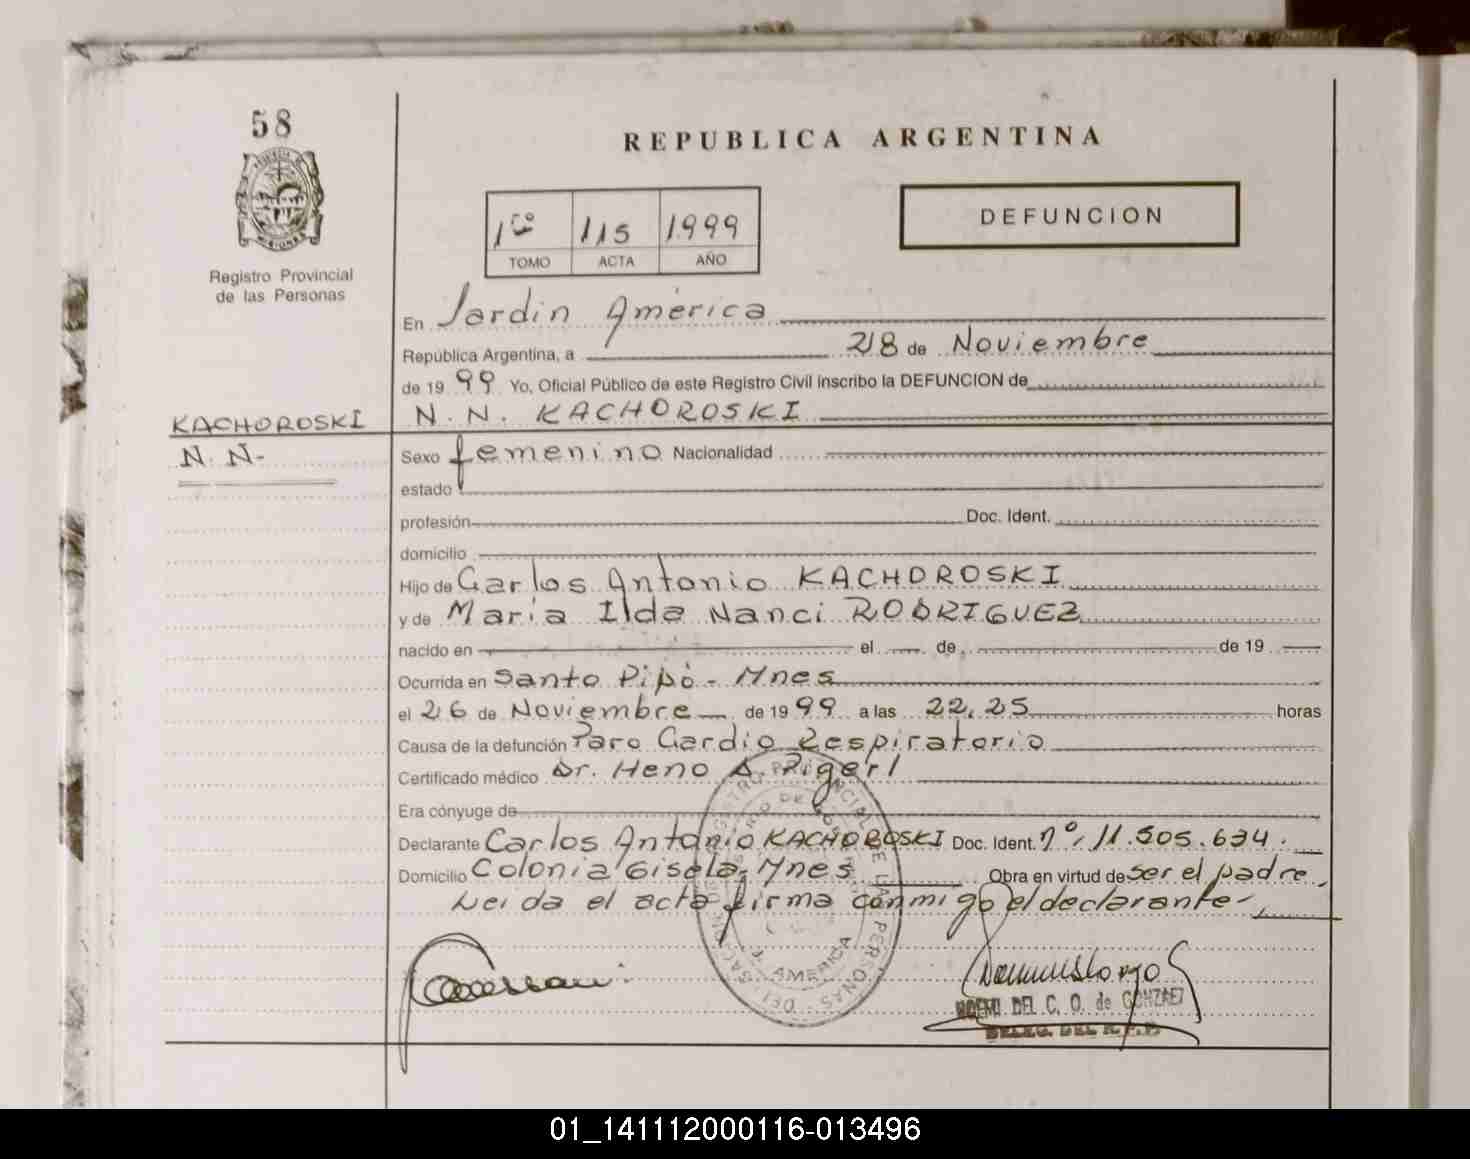 58
Registro Provincial
de las Personas
REPUBLICA ARGENTINA
1ro 115 1999
TOMO ACTA AÑO
DEFUNCION
En Jardin América
República Argentina, a 28 de Noviembre
de 19 99 Yo, Oficial Público de este Registro Civil inscribo la DEFUNCION de
KACHOROSKI N. N. KACHOROSKI
N. N-
Sexo femenino Nacionalidad
estado
profesión Doc. Ident.
domicilio
Hijo de Carlos Antonio KACHOROSKI
y de María Ilda Nanci RODRIGUEZ
nacido en el de de 19
Ocurrida en Santo Pipó - Mnes
el 26 de Noviembre de 19 99 a las 22,25 horas
Causa de la defunción Paro Cardio Respiratorio
Certificado médico Dr. Heno A. Rigerl
Era cónyuge de
Declarante Carlos Antonio KACHOROSKI Doc. Ident. nº 11.505.634.
Domicilio Colonia Gisela, Mnes Obra en virtud de ser el padre,
Leida el acta firma conmigo el declarante-
J. AMERICA
DEL C. O. de GONZALEZ
01_141112000116-013496